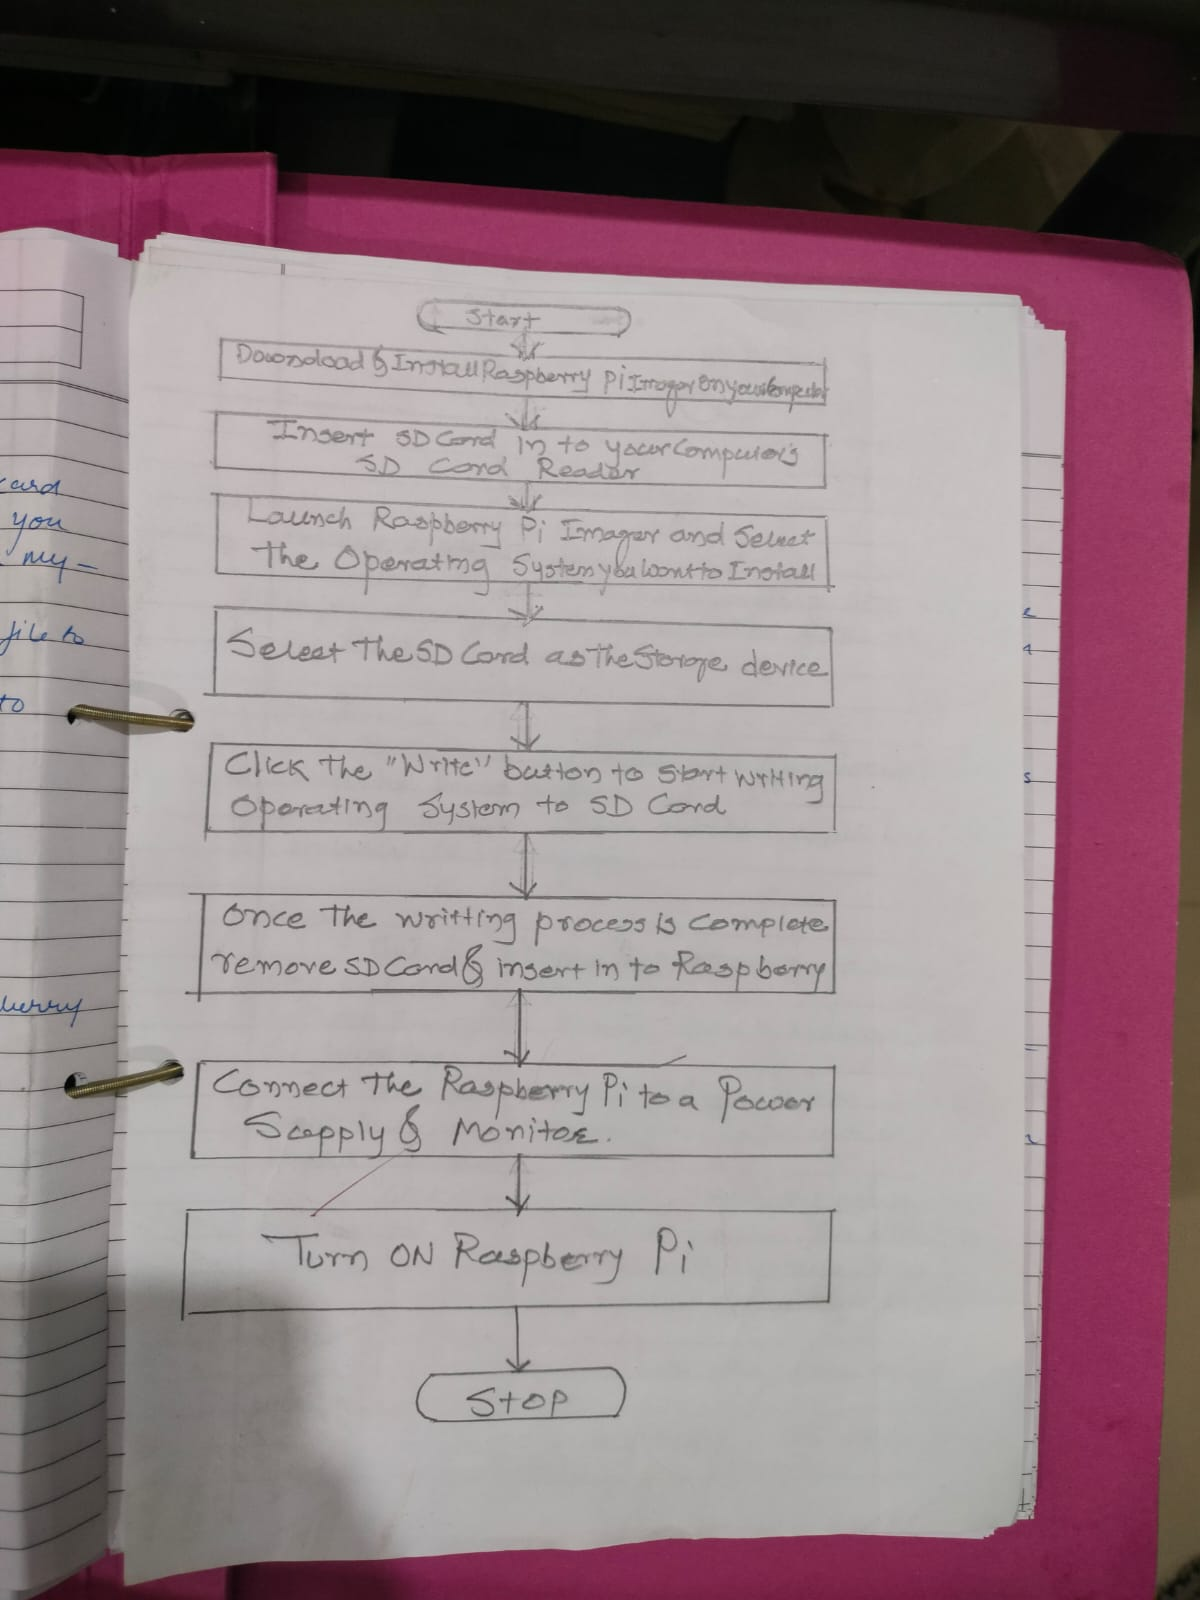 Start
Download & Install Raspberry Pi Imager on your Computer
Insert SD Card in to your Computer's
SD Card Reader
Launch Raspberry Pi Imager and Select
the Operating System you want to Install
Select The SD Card as The Storage device
Click the "Write" button to start writing
Operating System to SD Card
Once The writting process is Complete
remove SD Card & insert in to Raspberry
Connect The Raspberry Pi to a Power
Supply & Monitor.
Turn ON Raspberry Pi
Stop
card
you
my-
file to
to
berry